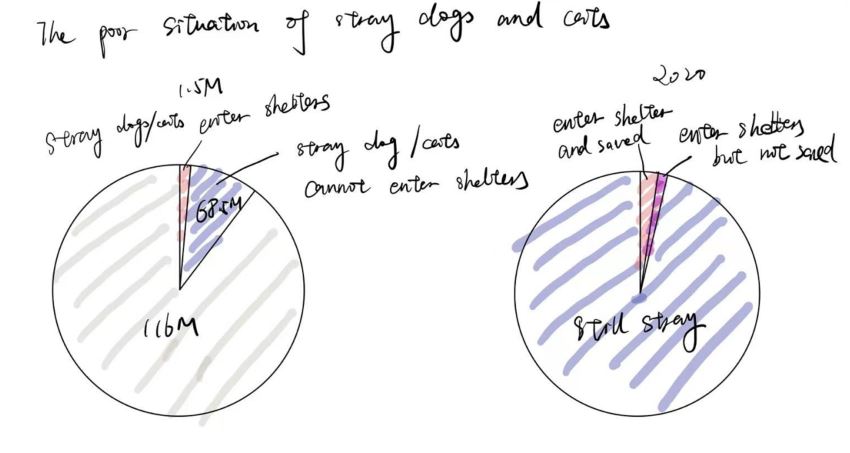 The poor situation of stray dogs and cats
1.5M
stray dogs/cats enter shelters
stray dog/cats
cannot enter shelters
68.5M
116M
2020
enter shelter
and saved
enter shelters
but not saved
still stray